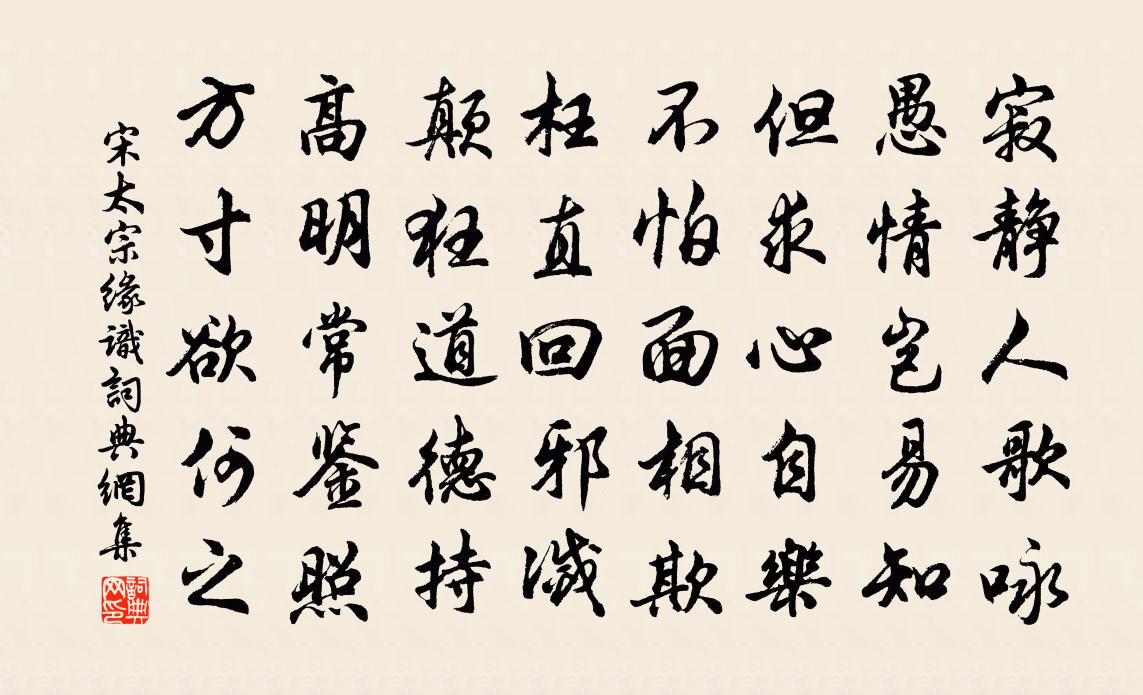 寂靜人歌咏
愚情岂易知
但求心自樂
不怕面相欺
枉直回邪滅
顛狂道德持
高明常鉴照
方寸欲何之
宋太宗緣識詞典網集
詞典網印